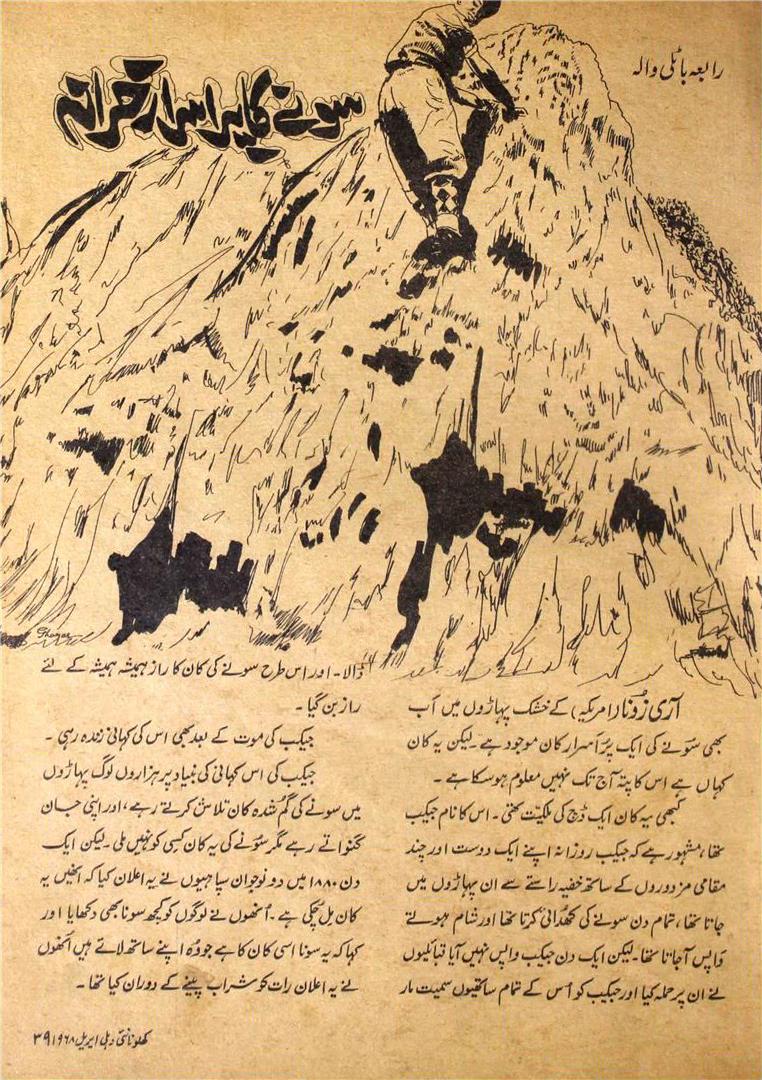 رابعہ باٹلی والہ
سونے کا پراسرار خزانہ
آری زونا (امریکہ) کے خشک پہاڑوں میں اَب
بھی سَونے کی ایک پُراَسرار کان موجود ہے۔ لیکن یہ کان
کہاں ہے اس کا پتہ آج تک نہیں معلوم ہوسکا ہے۔
کبھی یہ کان ایک ڈچ کی ملکیّت تھی۔ اس کا نام جیکب
تھا، مشہور ہے کہ جیکب روزانہ اپنے ایک دوست اور چند
مقامی مزدوروں کے ساتھ خفیہ راستے سے ان پہاڑوں میں
جاتا تھا، تمام دن سونے کی کھُدائی کرتا تھا اور شام ہوتے
وَاپس آجاتا تھا۔ لیکن ایک دن جیکب واپس نہیں آیا قبائلیوں
نے ان پر حملہ کیا اور جیکب کو اُس کے تمام ساتھیوں سمیت مار
ڈالا۔ اور اس طرح سونے کی کان کا راز ہمیشہ ہمیشہ کے لئے
راز بن گیا۔
جیکب کی موت کے بعد بھی اس کی کہانی زندہ رہی۔
جیکب کی اس کہانی کی بنیاد پر ہزاروں لوگ پہاڑوں
میں سونے کی گم شُدہ کان تلاش کرتے رہے، اور اپنی جان
گنواتے رہے مگر سَونے کی یہ کان کسی کو نہیں ملی۔ لیکن ایک
دن ۱۸۸۰ میں دو نوجوان سپاہیوں نے یہ اعلان کیا کہ انھیں یہ
کان مِل چُکی ہے۔ اُنھوں نے لوگوں کو کچھ سونا بھی دکھایا اور
کہا کہ یہ سونا اسی کان کا ہے جو وُہ اپنے ساتھ لاتے ہیں اُنھوں
نے یہ اعلان رات کو شراب پینے کے دوران کیا تھا۔
کھلونا نئی دہلی اپریل ۱۹۶۸ ۳۹